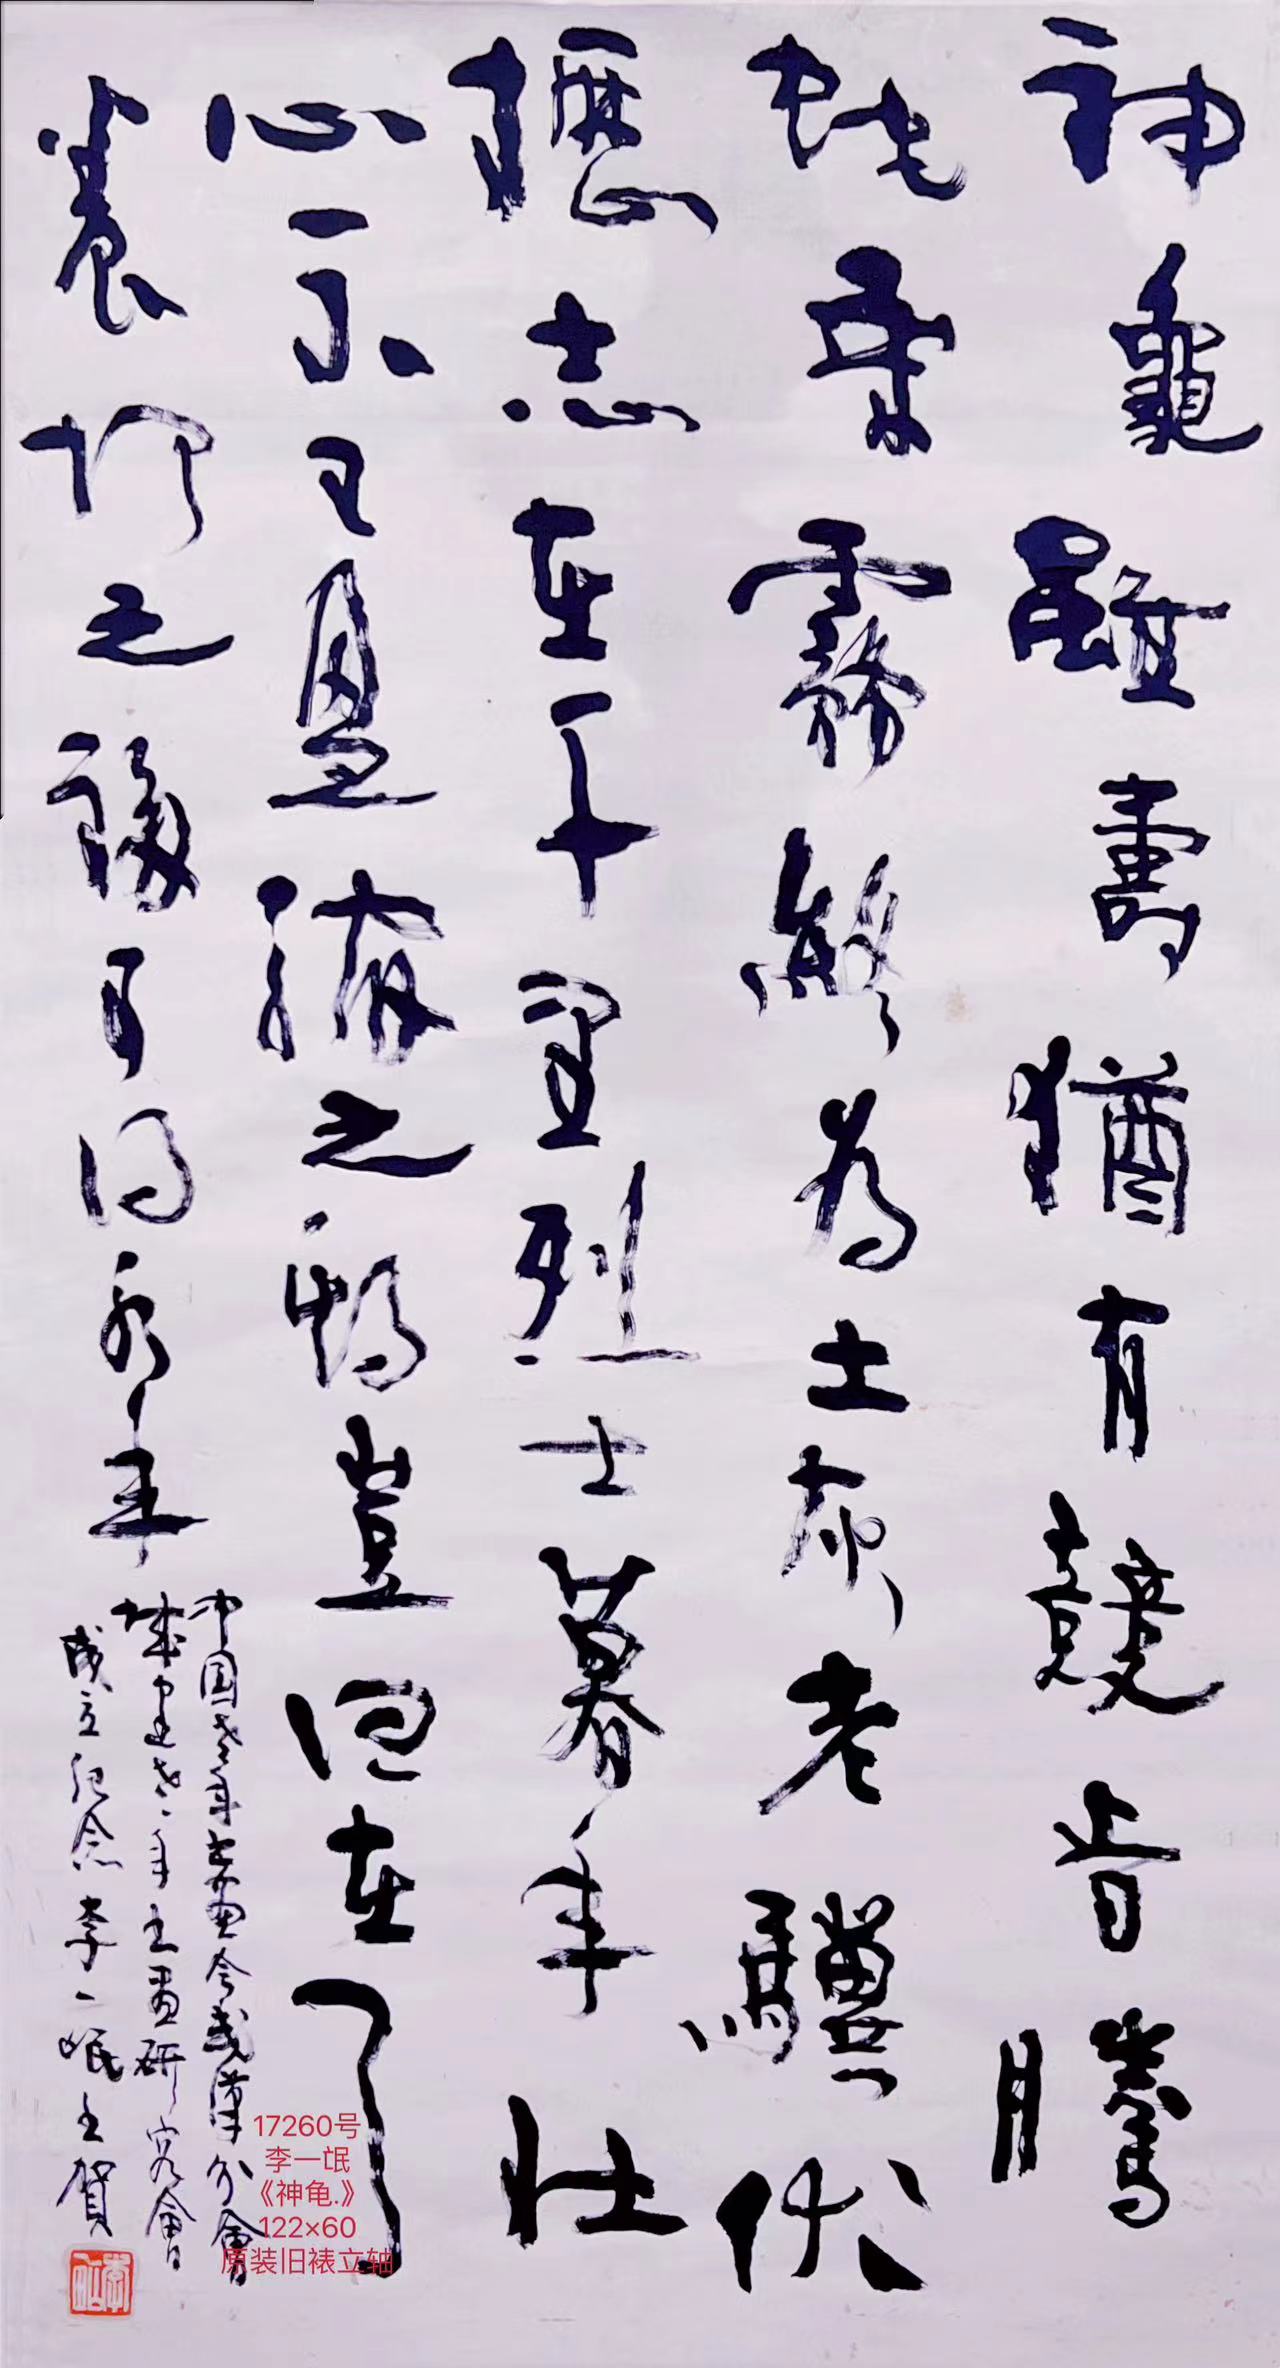 神龜雖壽猶有競旹騰
蛇乘霧終为土灰老驥伏
櫪志在千里烈士暮年壯
心不已盈縮之期豈但在
養怡之福可得永年
中国老年书畫会武漢分會
城建老年书画研究會
成立纪念李一氓书賀
17260号
李一氓
《神龟.》
122×60
原装旧裱立轴